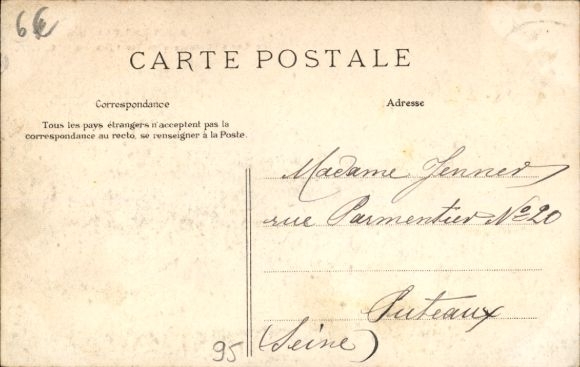 6€
CARTE POSTALE
Correspondance
Tous les pays étrangers n'acceptent pas la
correspondance au recto, se renseigner à la Poste.
Adresse
Madame Jenner
rue Parmentier No 20
Puteaux
(Seine)
95